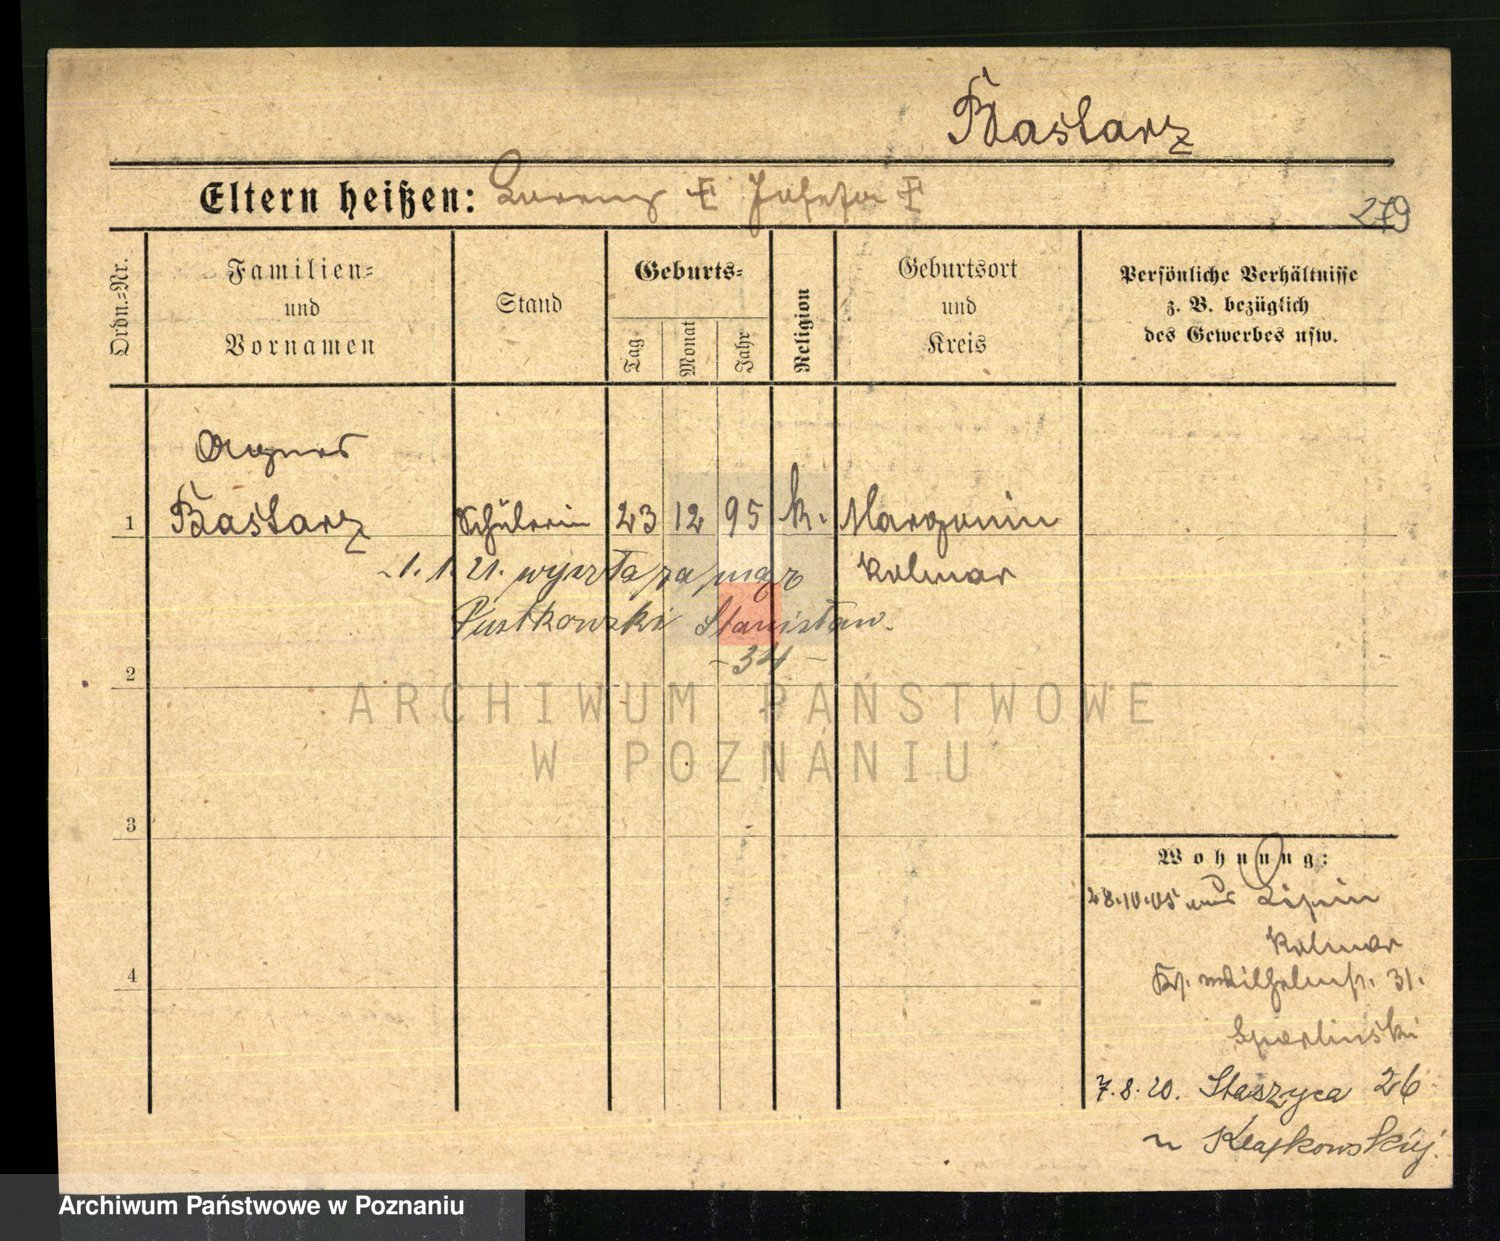 Bastarz
Eltern heißen: Lorenz † Josefa †
279
Ordn.=Nr.
Familien=
und
Vornamen
Stand
Geburts=
Tag
Monat
Jahr
Religion
Geburtsort
und
Kreis
Persönliche Verhältnisse
z. B. bezüglich
des Gewerbes usw.
Agnes
1 Bastarz Schülerin 23 12 95 k. Margonin
1. 1. 21. wyszła za mąż Kolmar
Piestkowski Stanisław.
-34-
2
ARCHIWUM PAŃSTWOWE
W POZNANIU
3
Wohnung:
28.10.05 aus Lipin
Kolmar
4
Kr. Wilhelmstr. 31.
7.8.20. Staszyca 26
u
Archiwum Państwowe w Poznaniu